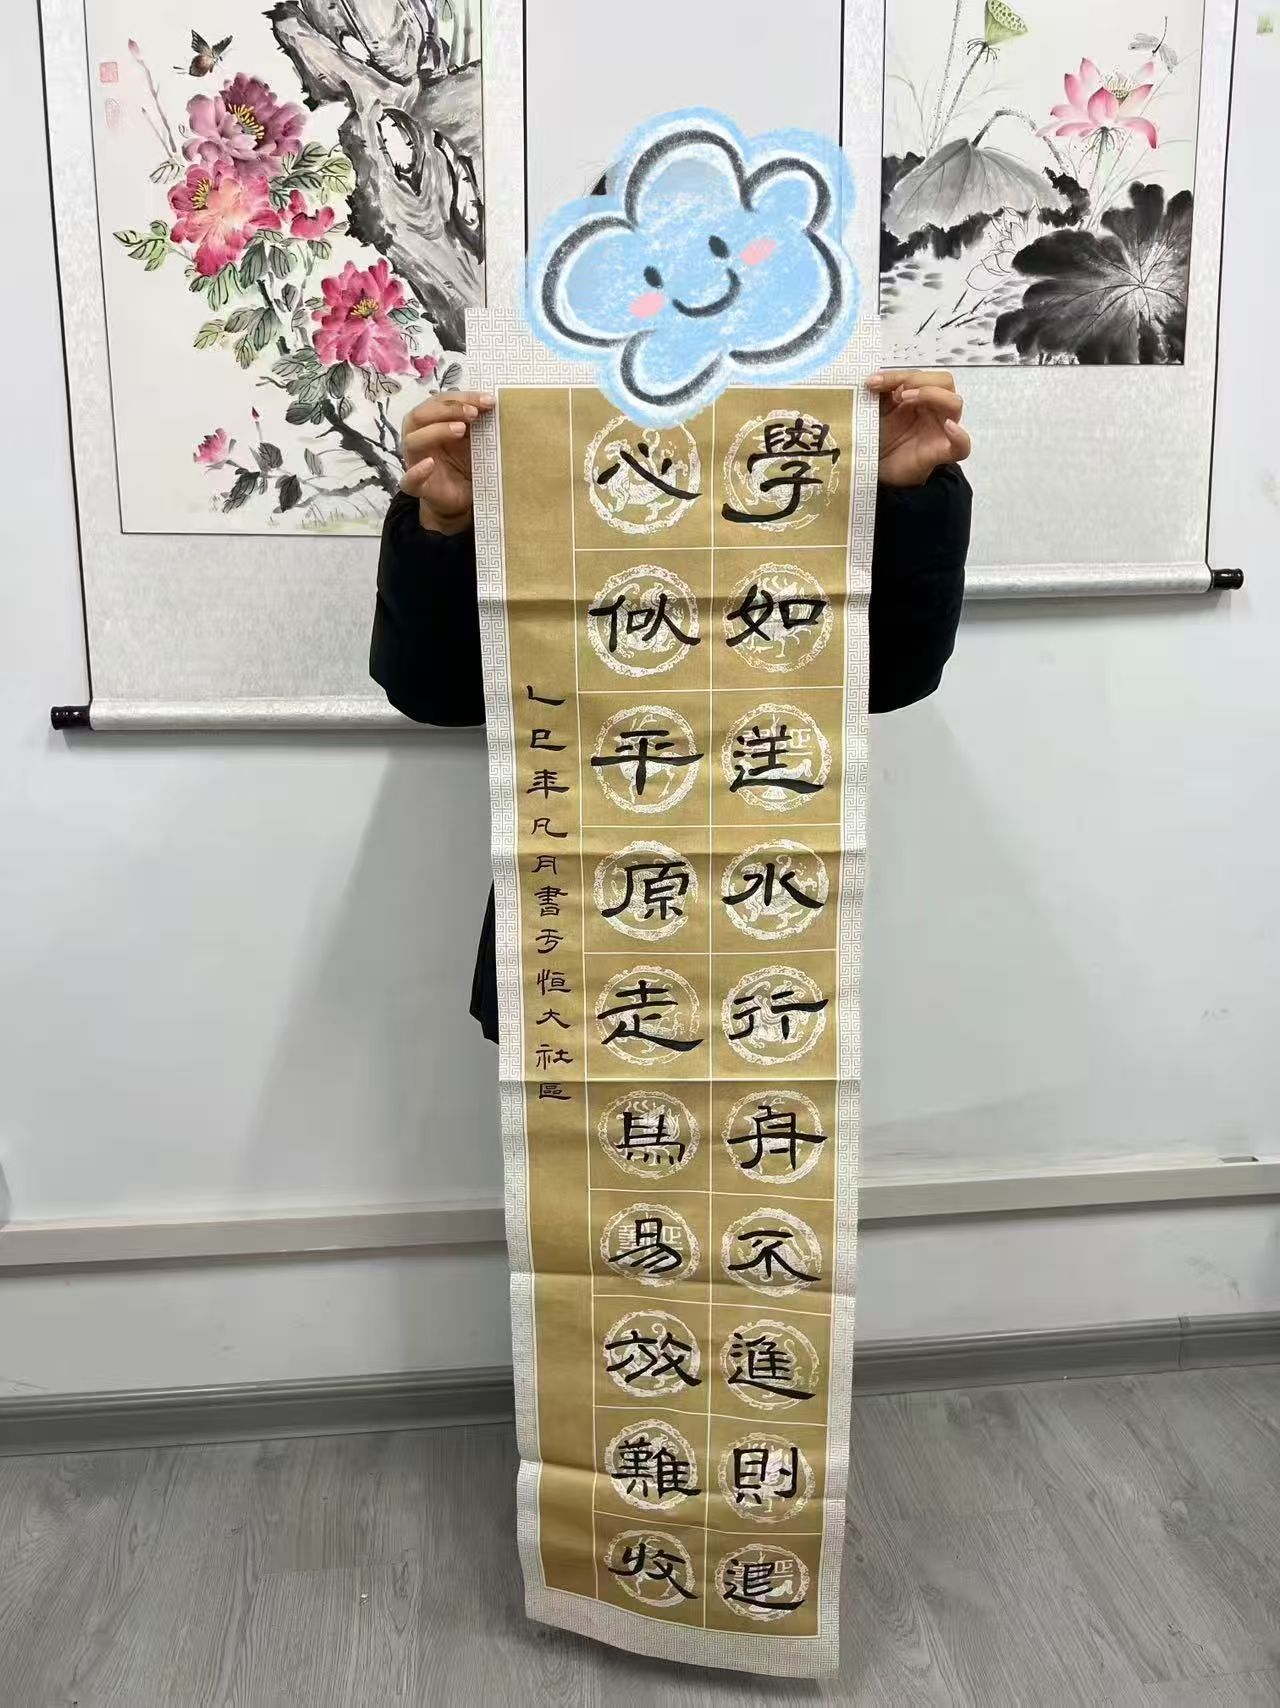 學如逆水行舟不進則退
心似平原走馬易放難收
乙巳年凡月書于恒大社區